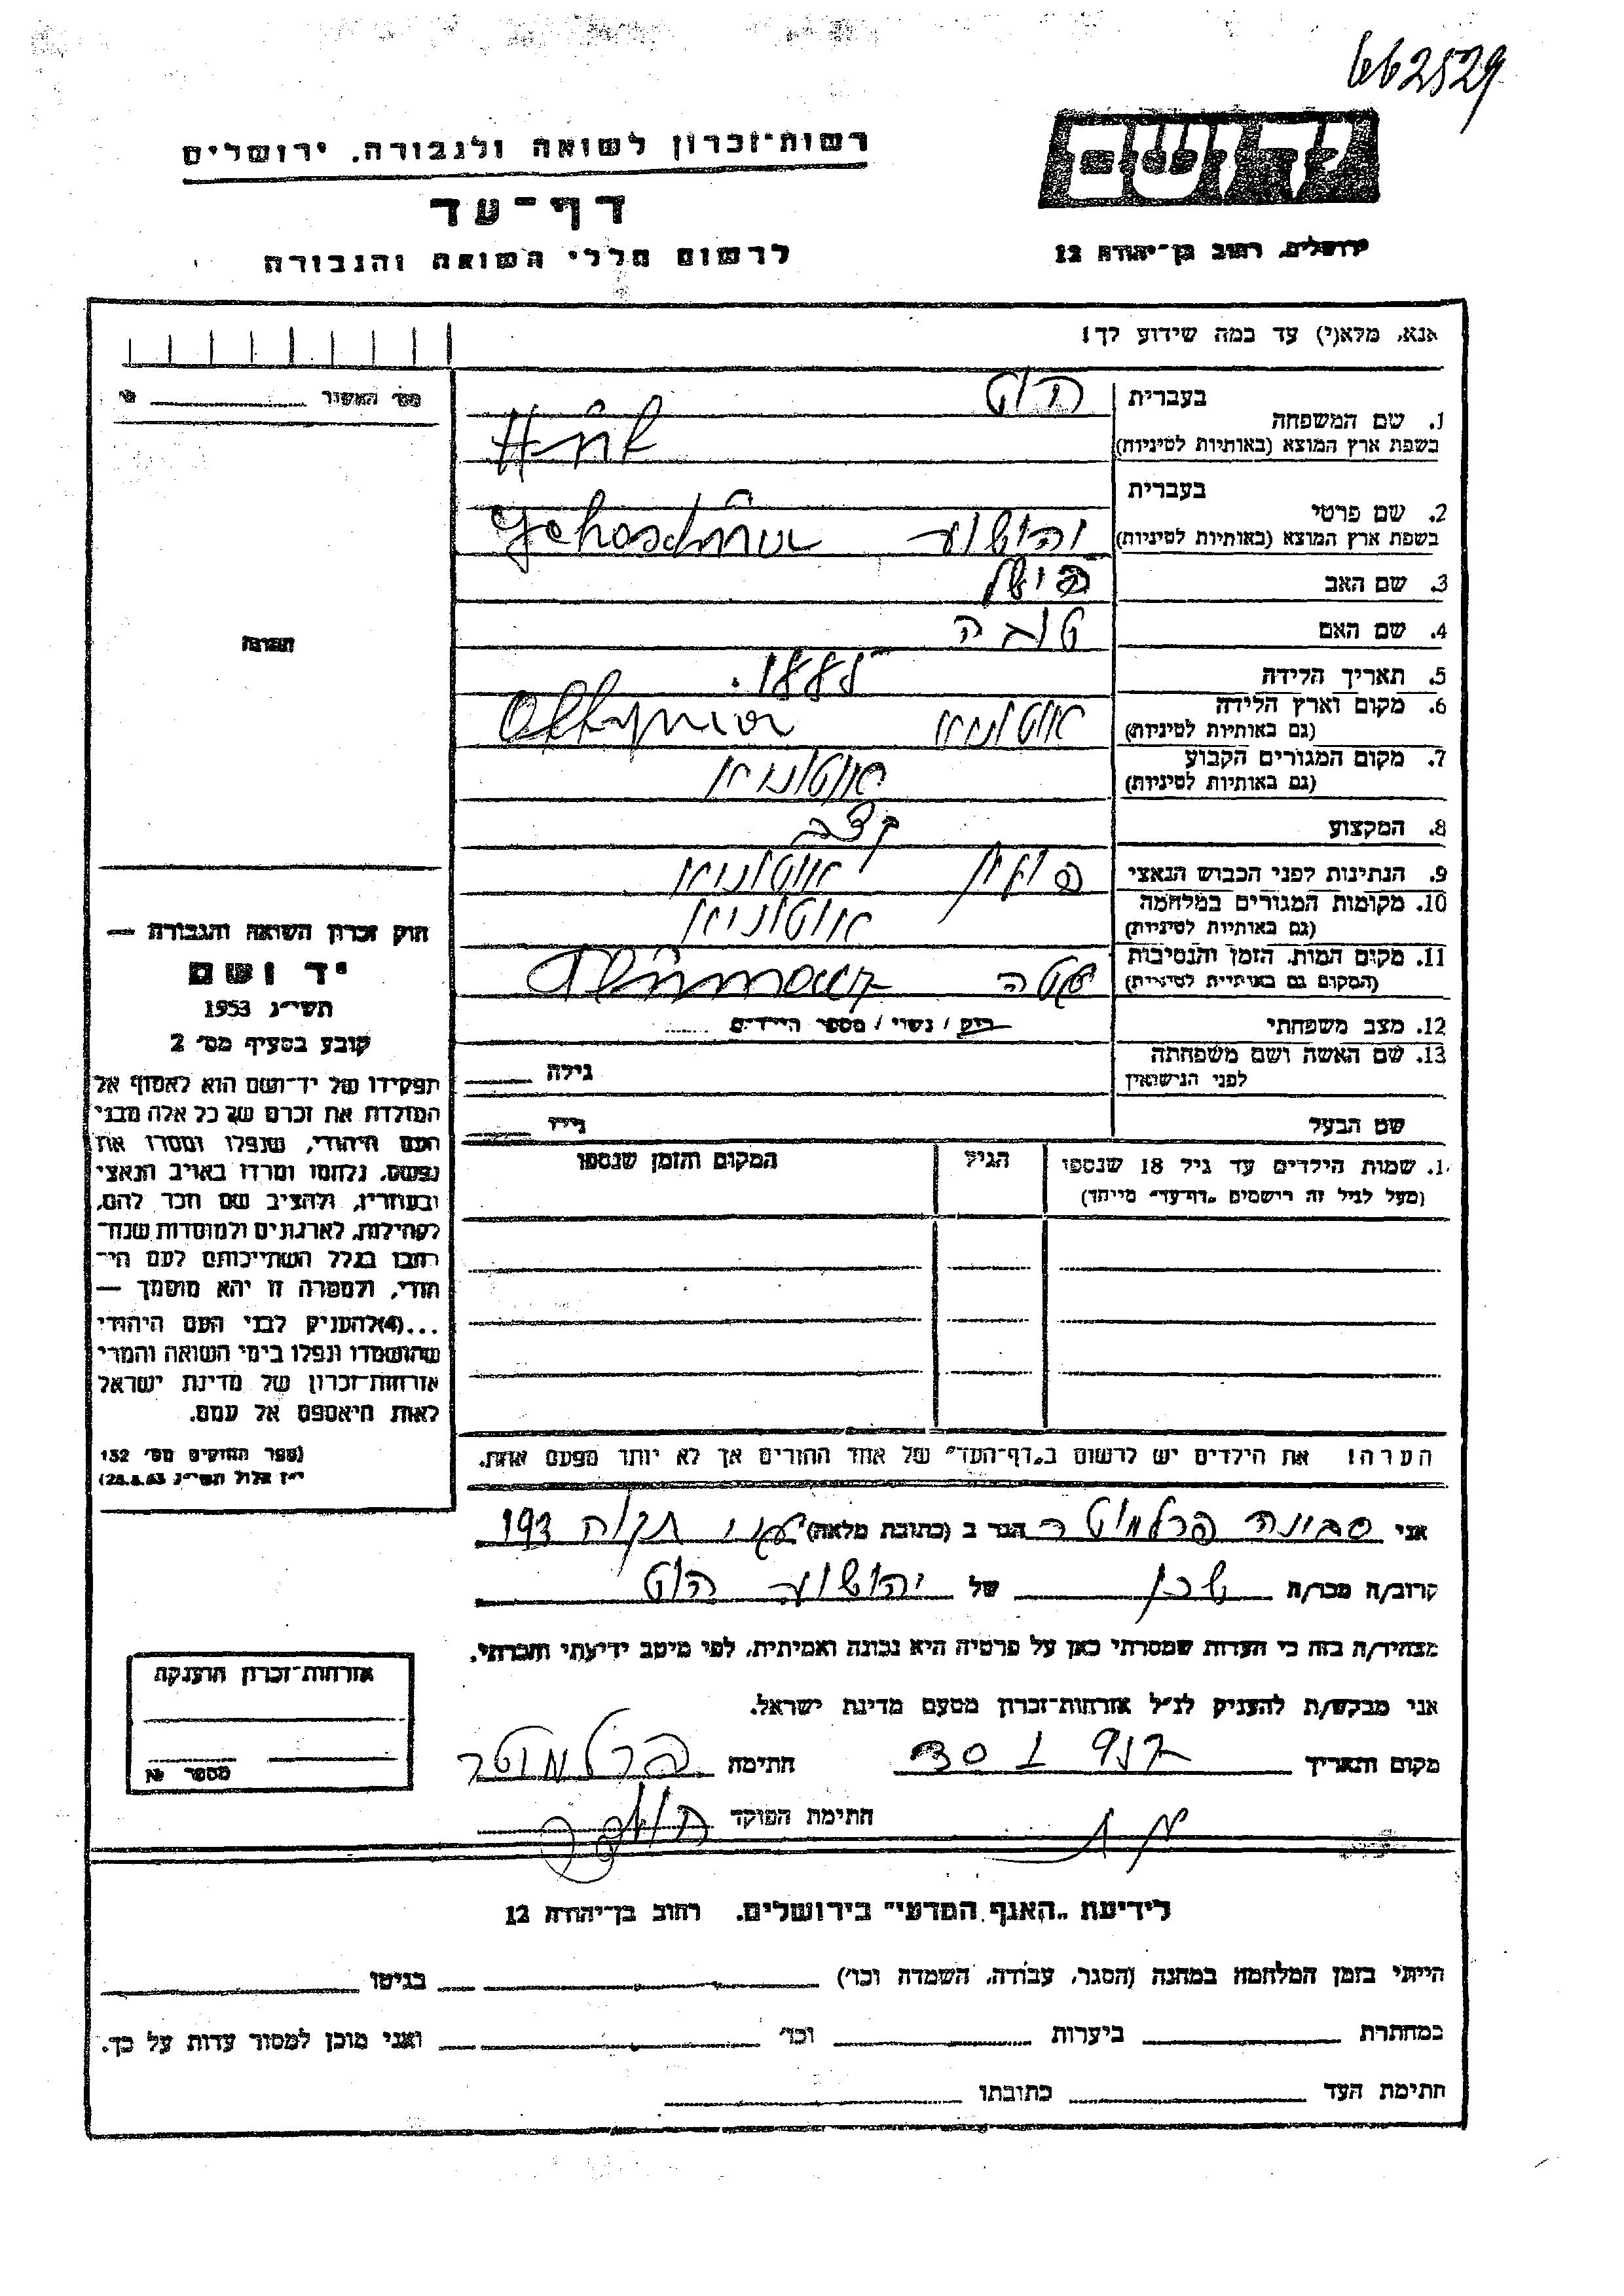 662529
יד ושם
רשות־זכרון לשואה ולגבורה. ירושלים
דף־עד
לרשום חללי השואה והגבורה
ירושלים, רחוב בן־יהודה 12
אנא, מלא(י) עד כמה שידוע לך!
מס׳ האשיר
בעברית הוט
1. שם המשפחה
בשפת ארץ המוצא (באותיות לטיניות)
בעברית
2. שם פרטי
בשפת ארץ המוצא (באותיות לטיניות) יהושוע
3. שם האב פישל
4. שם האם טובה
5. תאריך הלידה 1885.
6. מקום וארץ הלידה
(גם באותיות לטיניות)
7. מקום המגורים הקבוע
(גם באותיות לטיניות)
8. המקצוע קצב
9. הנתינות לפני הכבוש הנאצי פולין
10. מקומות המגורים במלחמה
(גם באותיות לטיניות)
11. מקום המות, הזמן והנסיבות
(המקום גם באותיות לטיניות)
12. מצב משפחתי רוק / נשוי / מספר הילדים
13. שם האשה ושם משפחתה
לפני הנישואין גילה
שם הבעל גילו
תמונה
חוק זכרון השואה והגבורה —
יד ושם
תשי״ג 1953
קובע בסעיף מס׳ 2
תפקידו של יד־ושם הוא לאסוף אל
המולדת את זכרם של כל אלה מבני
העם היהודי, שנפלו ומסרו את
נפשם, נלחמו ומרדו באויב הנאצי
ובעוזריו, ולהציב שם וזכר להם,
לקהילות, לארגונים ולמוסדות שנח־
רבו בגלל השתייכותם לעם הי־
הודי, ולמטרה זו יהא מוסמך —
...(4)להעניק לבני העם היהודי
שהושמדו ונפלו בימי השואה והמרי
אזרחות־זכרון של מדינת ישראל
לאות היאספם אל עמם.
(ספר החוקים מס׳ 132
י״ז אלול תשי״ג 28.8.53)
1. שמות הילדים עד גיל 18 שנספו הגיל המקום והזמן שנספו
(מעל לגיל זה רושמים „דף־עד״ מיוחד)
הערה! את הילדים יש לרשום ב„דף־העד״ של אחד ההורים אך לא יותר מפעם אחת.
אני פרלמוטר הגר ב (כתובת מלאה) תקוה 193
קרוב/ה מכר/ה שכן של יהושוע הוט
מצהיר/ה בזה כי העדות שמסרתי כאן על פרטיה היא נכונה ואמיתית, לפי מיטב ידיעתי והכרתי.
אני מבקש/ת להעניק לנ״ל אזרחות־זכרון מטעם מדינת ישראל.
מקום ותאריך 30 חתימה פרלמוטר
חתימת הפוקד
אזרחות־זכרון הוענקה
מספר №
לידיעת „האגף המדעי״ בירושלים. רחוב בן־יהודה 12
הייתי בזמן המלחמה במחנה (הסגר, עבודה, השמדה וכו׳) בגיטו
במחתרת ביערות וכו׳ ואני מוכן למסור עדות על כך.
חתימת העד כתובתו